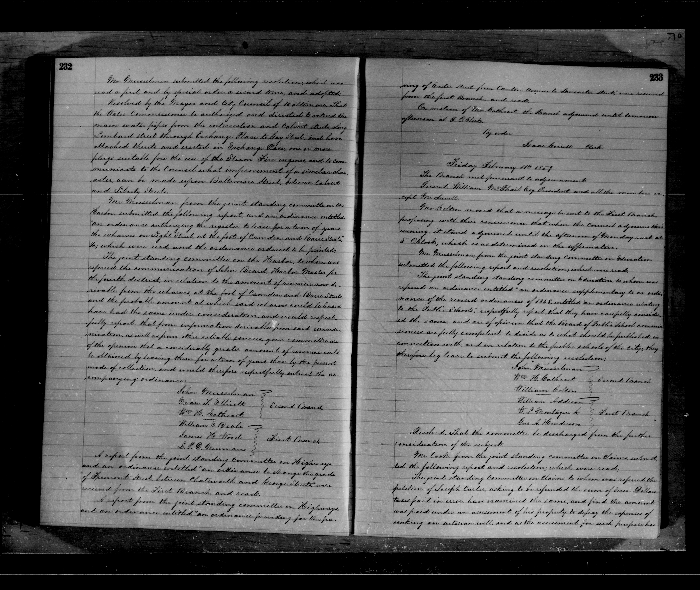 232
Mr. Musselman submitted the following resolution, which was
read and by special order a second time, and adopted.
Resolved by the Mayor and City Council of Baltimore, That
the Water Commissioner be authorized and directed to extend the
main water pipes from the intersection and Calvert streets along
Lombard street through Exchange Place to Gay Street, and have
attached thereto and erected in Exchange Place, one or more
plugs suitable for the use of the Steam Fire engines and to com-
municate to the Council what improvement of a similar char-
acter can be made upon Baltimore Street, between Calvert
and Liberty Streets.
Mr. Musselman from the joint standing committee on the
Harbor submitted the following report and an ordinance entitled
an ordinance authorizing the register to lease for a term of years
the wharves on Light Street at the foot of Camden and Barre Streets
&c, which were read and the ordinance ordered to be printed.
The joint standing committee on the Harbor to whom was
referred the communication of John Beard Harbor Master for
the fourth district, in relation to the amount of revenue now de-
rivable from the wharves at the foot of Camden and Barre Streets
and the probable amount at which said wharves could be leased
have had the same under consideration, and would respect-
fully report that from information derivable from said commu-
nication, as well as from other reliable sources, your committee are
of the opinion that a considerably greater amount of revenue will
be obtained by leasing them for a term of years than by the present
mode of collection, and would therefore respectfully submit the ac-
companying ordinance.
John Musselman
Wm. H. Cathcart
Second Branch
William S.
James H. Wood
First Branch
A report from the joint standing committee on Highways
and an ordinance entitled "an ordinance to change the grade
of Fremont Street between Chatsworth and George Streets" were
received from the First Branch and read.
A report from the joint standing committee on Highways
and an ordinance entitled "an ordinance providing for the pav-
233
ing of Water Street from Centre
from the first Branch and read.
On motion of Wm. Cathcart the Branch adjourned until tomorrow
afternoon at 4 O'Clock.
By order
Clerk
Friday February 11th 1859
The Branch met pursuant to adjournment.
Present William McPhail Esq. President and all the members ex-
cept
moved that a message be sent to the First Branch
proposing with their concurrence that when the Council adjourns this
evening, it stand adjourned until the afternoon of Monday next at
4 O'Clock, which was determined in the affirmative.
Mr. Musselman from the joint standing committee on Education
submitted the following report and resolution, which were read.
The joint standing committee on Education to whom was
referred an ordinance entitled "an ordinance supplementary to an ordi-
nance of the revised ordinances of 1858 entitled an ordinance relating
to the Public Schools," respectfully report that they have carefully consider-
ed the same, and are of opinion that the Board of Public School commis-
sioners are fully competent to decide as to what should be published in
connection with and in relation to the public schools of the city, they
therefore beg leave to submit the following resolution;
John Musselman
Wm. H. Cathcart
Second Branch
William
William Addison
First Branch
Resolved, That the committee be discharged from the further
consideration of the subject.
from the joint standing committee on Claims submit-
ted the following report and resolution, which was read.
The joint standing committee on Claims to whom was referred the
petition of Joseph Carter, asking to be refunded the sum of
taxes paid in error, have examined the same, and find the amount
was paid under an assessment of his property to defray the expenses of
sinking an artesian well, and as the assessment for such purpose has